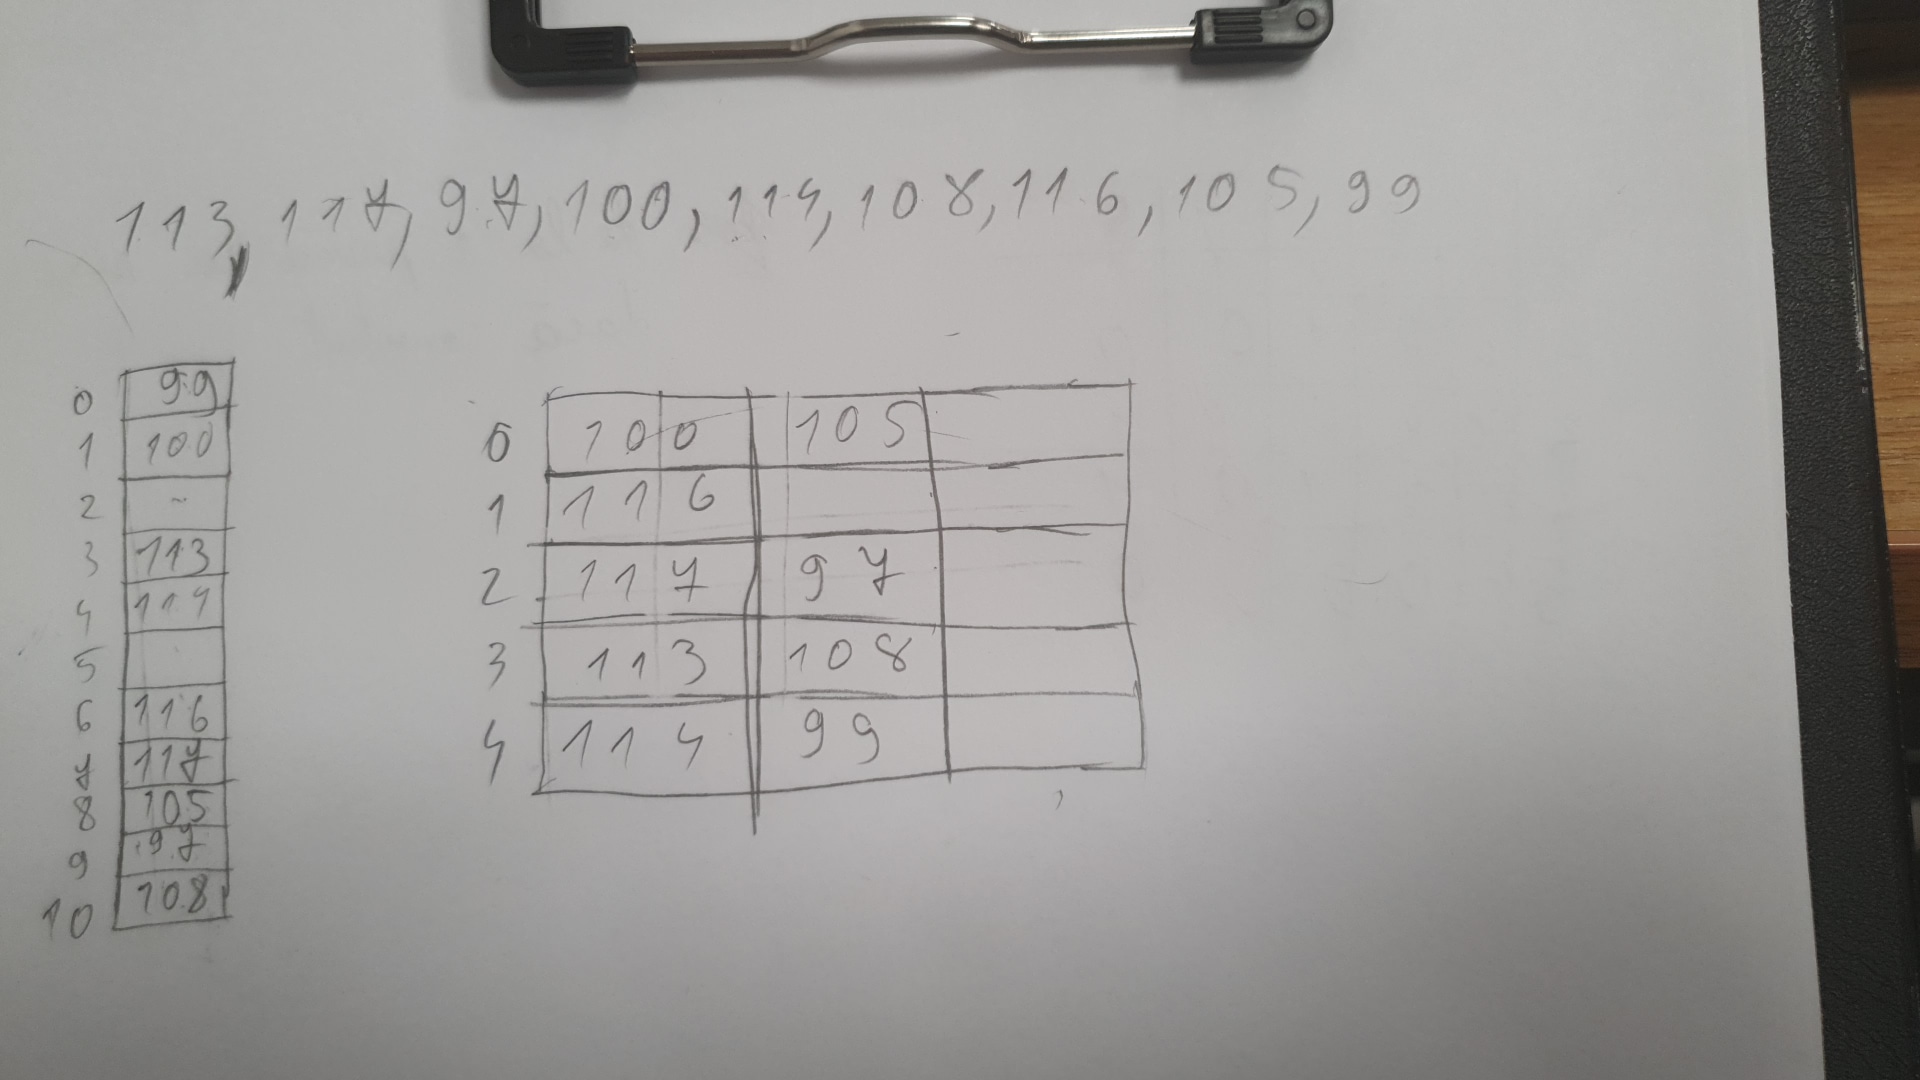 113, 117, 97, 100, 114, 108, 116, 105, 99
0 99
1 100
2 -
3 113
4 114
5
6 116
7 117
8 105
9 97
10 108
0 100 105
1 116
2 117 97
3 113 108
4 114 99